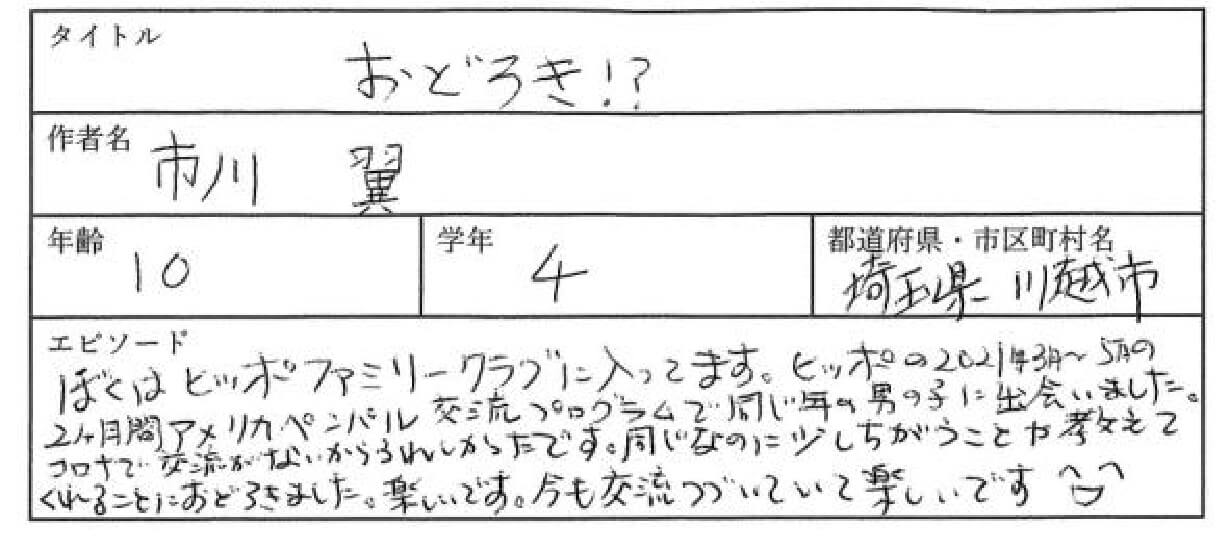 タイトル
おどろき!?
作者名
市川 翼
年齢
10
学年
4
都道府県・市区町村名
埼玉県 川越市
エピソード
ぼくはヒッポファミリークラブに入ってます。ヒッポの2021年3月~5月の
2ヶ月間アメリカペンパル交流プログラムで同じ年の男の子に出会いました。
コロナで交流がないからうれしかったです。同じなのに少しちがうことや教えて
くれることにおどろきました。楽しいです。今も交流つづいていて楽しいです ^U^